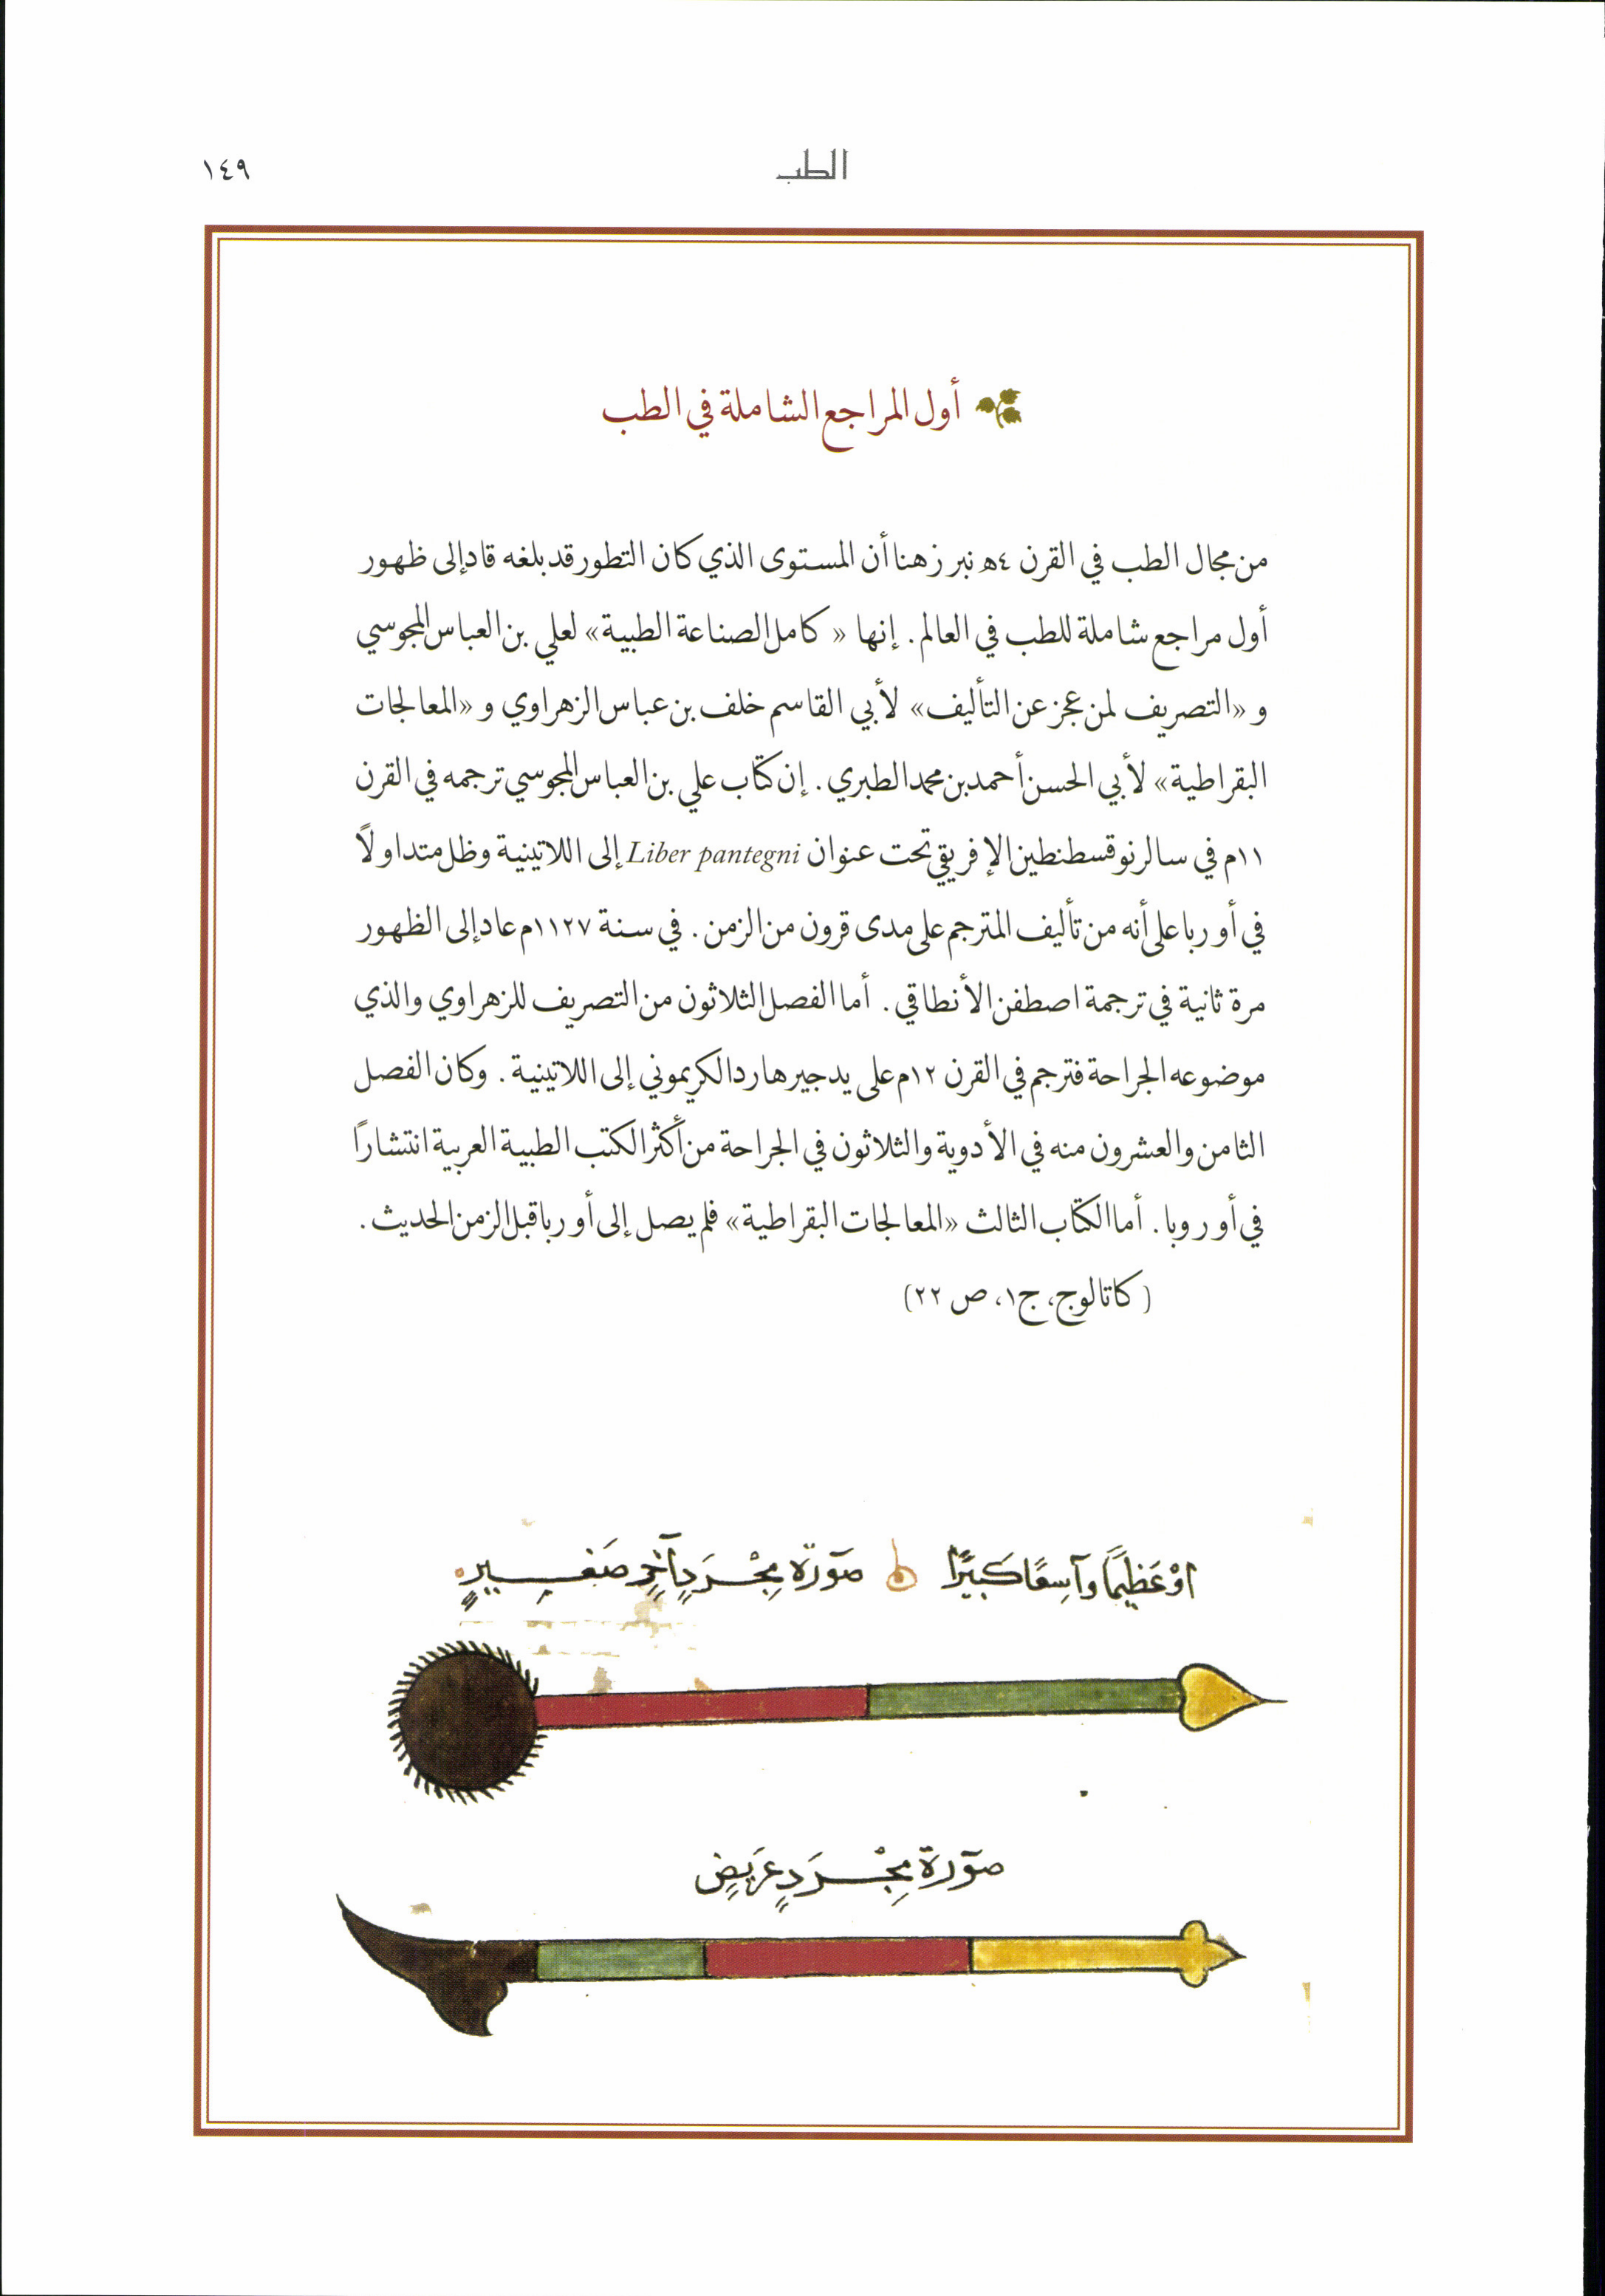 الطب
١٤٩
أول المراجع الشاملة في الطب
من مجال الطب في القرن ٤هـ نبرز هنا أن المستوى الذي كان التطور قد بلغه قاد إلى ظهور
أول مراجع شاملة للطب في العالم. إنها « كامل الصناعة الطبية» لعلي بن العباس المجوسي
و «التصريف لمن عجز عن التأليف» لأبي القاسم خلف بن عباس الزهراوي و «المعالجات
البقراطية» لأبي الحسن أحمد بن محمد الطبري. إن كتاب علي بن العباس المجوسي ترجمه في القرن
١١م في سالرنو قسطنطين الإفريقي تحت عنوان Liber pantegni إلى اللاتينية وظل متداولاً
في أوربا على أنه من تأليف المترجم على مدى قرون من الزمن. في سنة ١١٢٧م عاد إلى الظهور
مرة ثانية في ترجمة اصطفن الأنطاقي. أما الفصل الثلاثون من التصريف للزهراوي والذي
موضوعه الجراحة فترجم في القرن ١٢م على يد جيرهارد الكريموني إلى اللاتينية. وكان الفصل
الثامن والعشرون منه في الأدوية والثلاثون في الجراحة من أكثر الكتب الطبية العربية انتشارًا
في أوروبا. أما الكتاب الثالث «المعالجات البقراطية» فلم يصل إلى أوربا قبل الزمن الحديث.
(كاتالوج، ج١، ص ٢٢)
اوْ عَظِيمًا وَآسِعًا كَبِيرًا صُورَة مِجْرَدٍ آخَرٍ صَغِيرٍ
صُورَة مِجْرَدٍ عَرِيضٍ